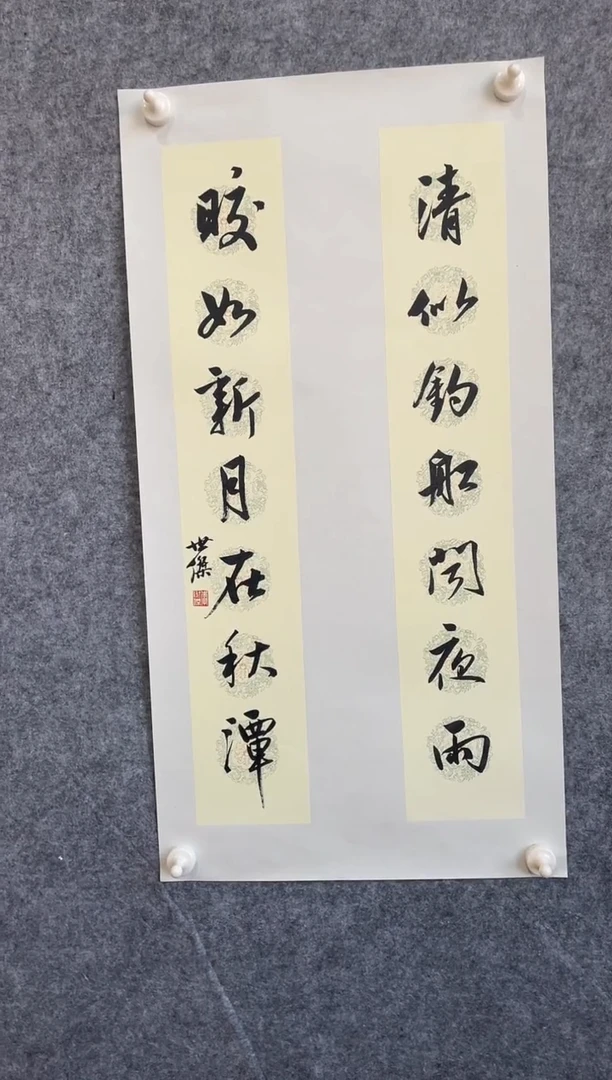 清似钓船闻夜雨
皎如新月在秋潭
世傑